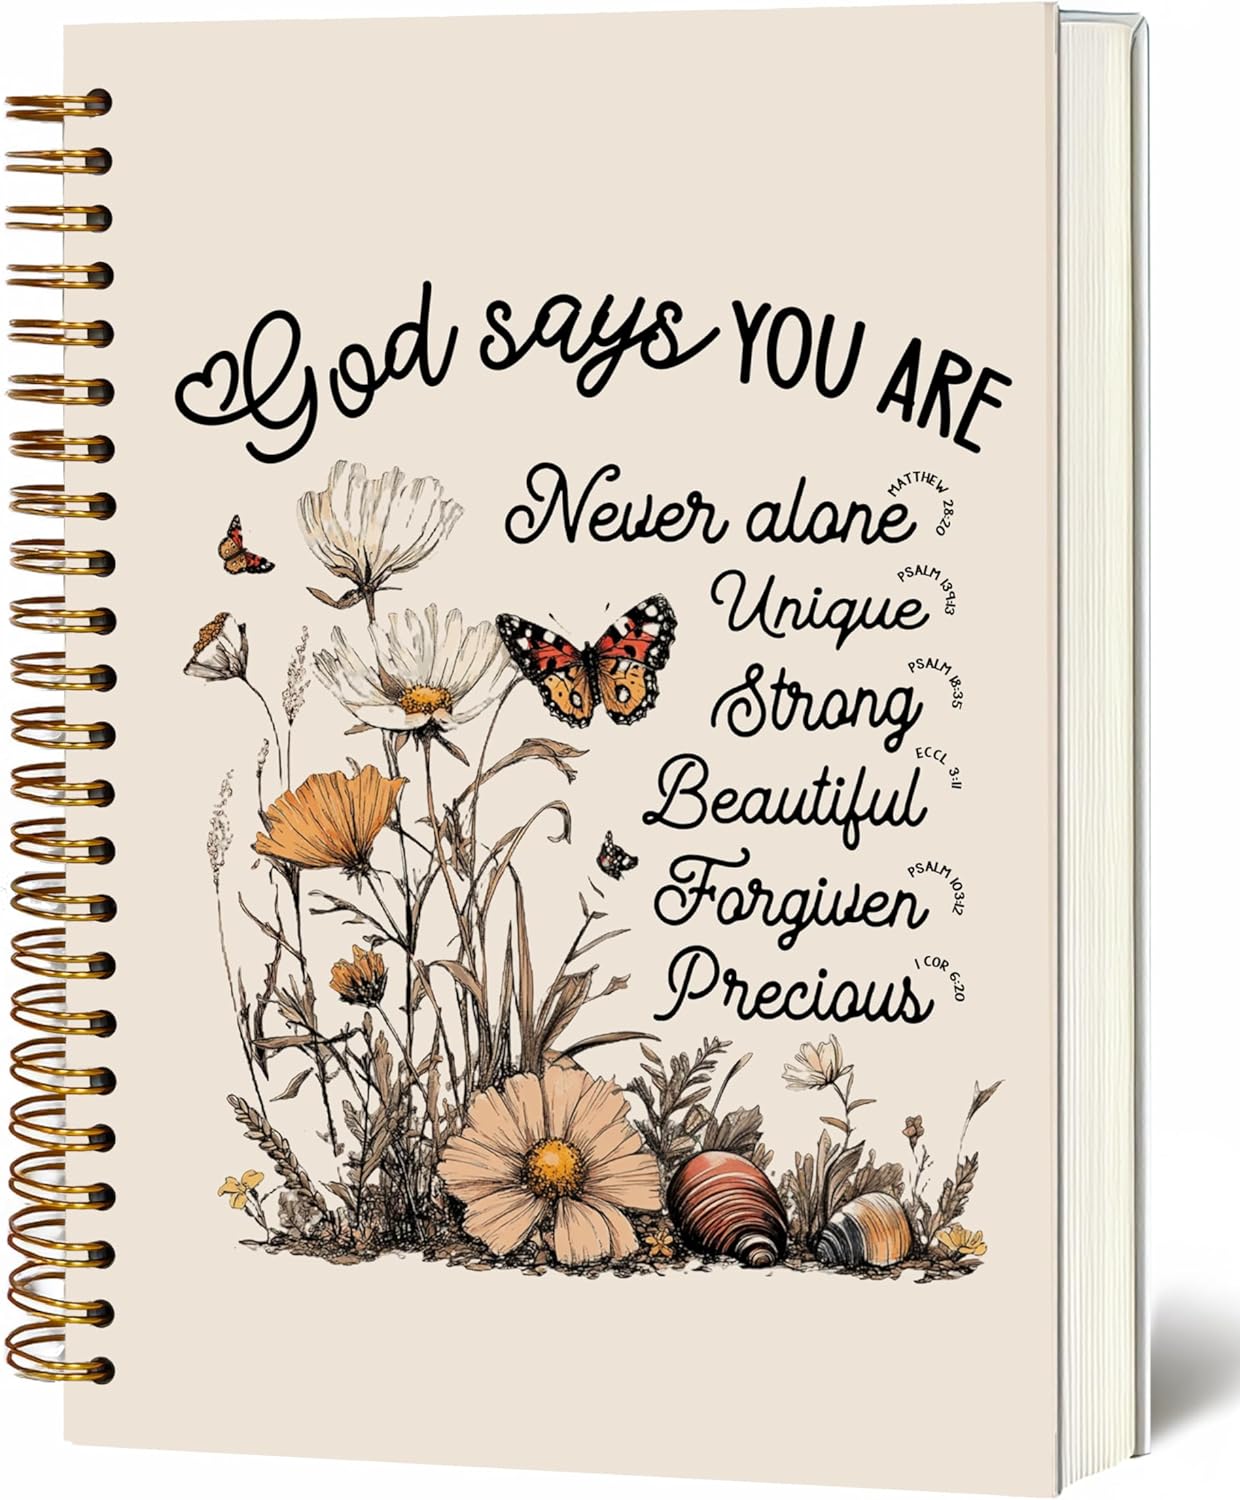 God says YOU ARE
Never alone MATTHEW 28:20
Unique PSALM 139:13
Strong PSALM 18:35
Beautiful ECCL 3:11
Forgiven PSALM 103:12
Precious 1 COR 6:20